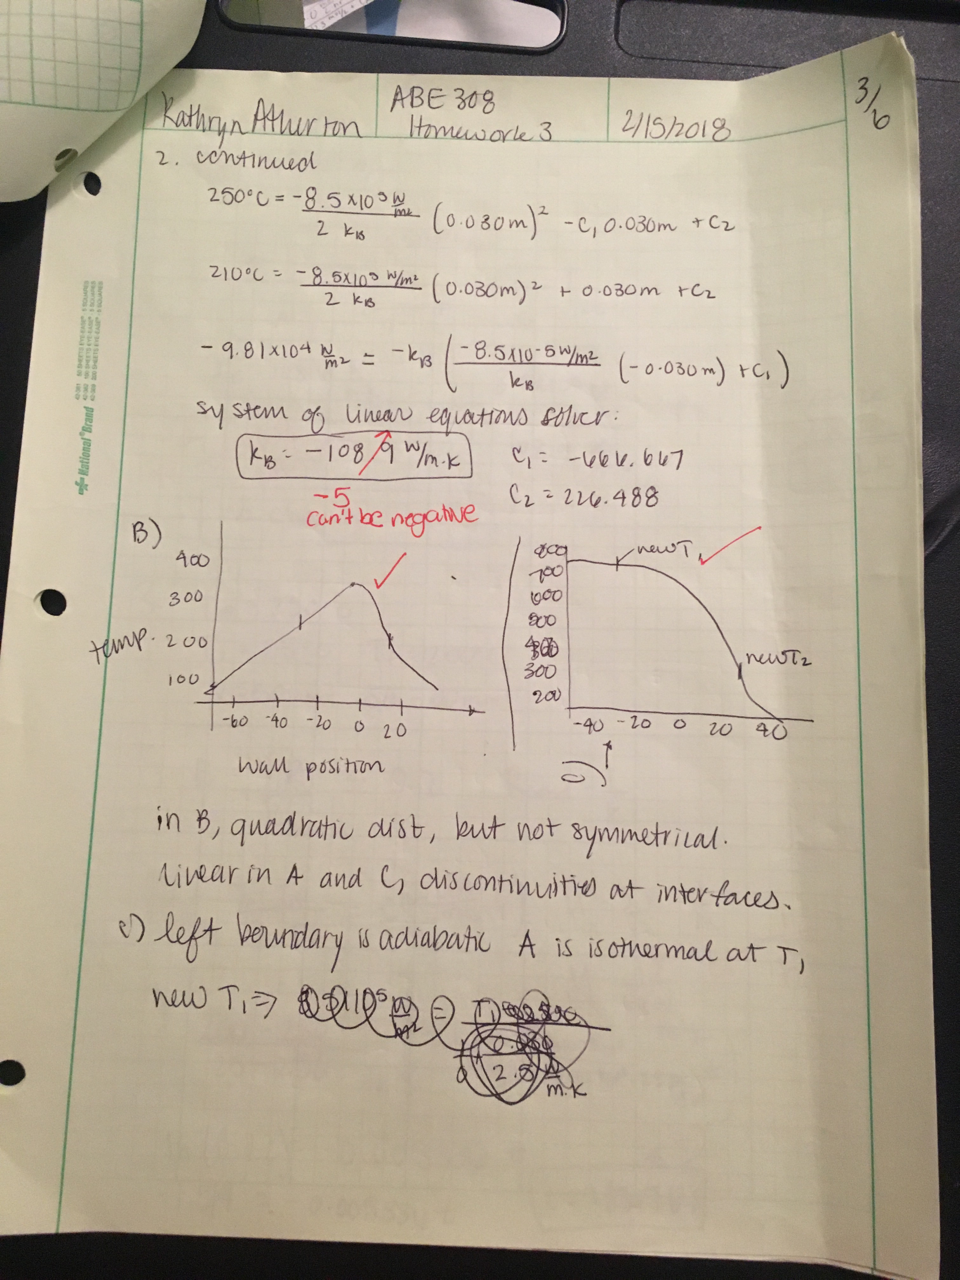 Kathryn Atherton
ABE 308
Homework 3
2/15/2018
3/6
2. continued
250°C = -8.5×10⁵ W/m² / 2 kB (0.030m)² - C₁ 0.030m + C₂
210°C = -8.5×10⁵ W/m² / 2 kB (0.030m)² + 0.030m + C₂
-9.81×10⁴ W/m² = -kB ( -8.5×10-5 W/m² / kB (-0.030m) + C₁ )
system of linear equations solver:
kB = -108 9 W/m·K
C₁ = -666.667
C₂ = 226.488
-5
can't be negative
B)
400
300
temp. 200
100
-60 -40 -20 0 20
wall position
800
700
600
500
400
300
200
new T₁
new T₂
-40 -20 0 20 40
in B, quadratic dist, but not symmetrical.
linear in A and C, discontinuities at interfaces.
c) left boundary is adiabatic A is isothermal at T₁
new T₁ ⇒
m·K
National® Brand